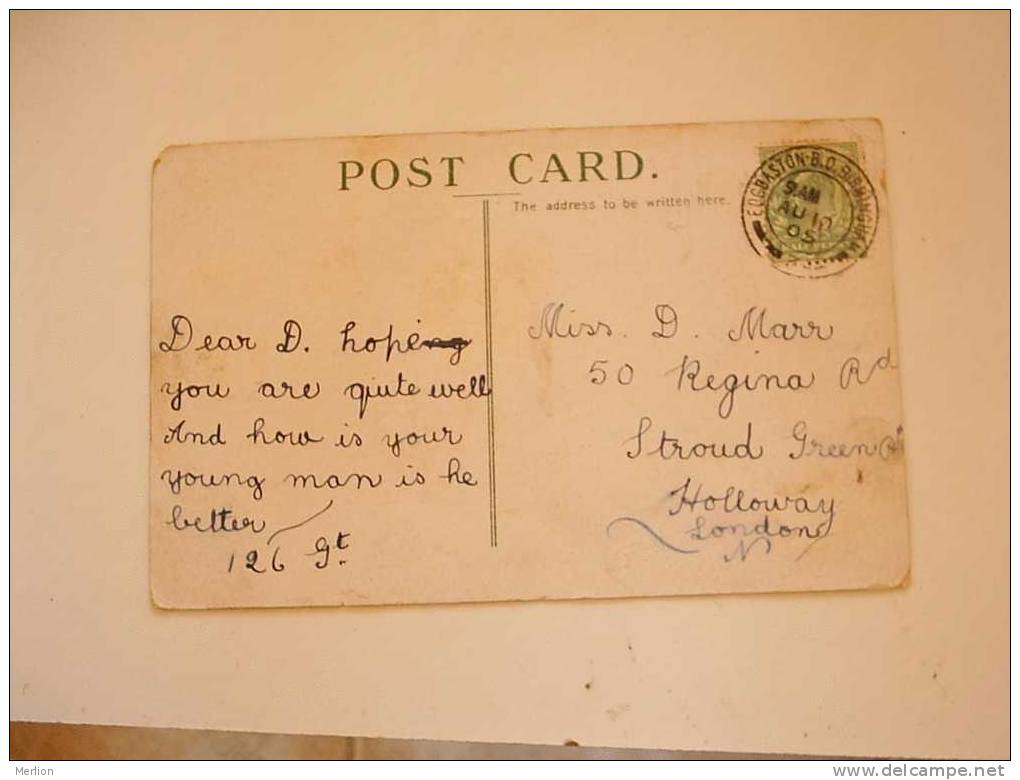 POST CARD.
The address to be written here.
EDGBASTON·B.O. BIRMINGHAM
9 AM
AU 10
05
Dear D. hope
you are quite well
And how is your
young man is he
better
126 Gt.
Miss. D. Marr
50 Regina Rd
Stroud Green Rd
Holloway
London
N
Merlion
www.delcampe.net